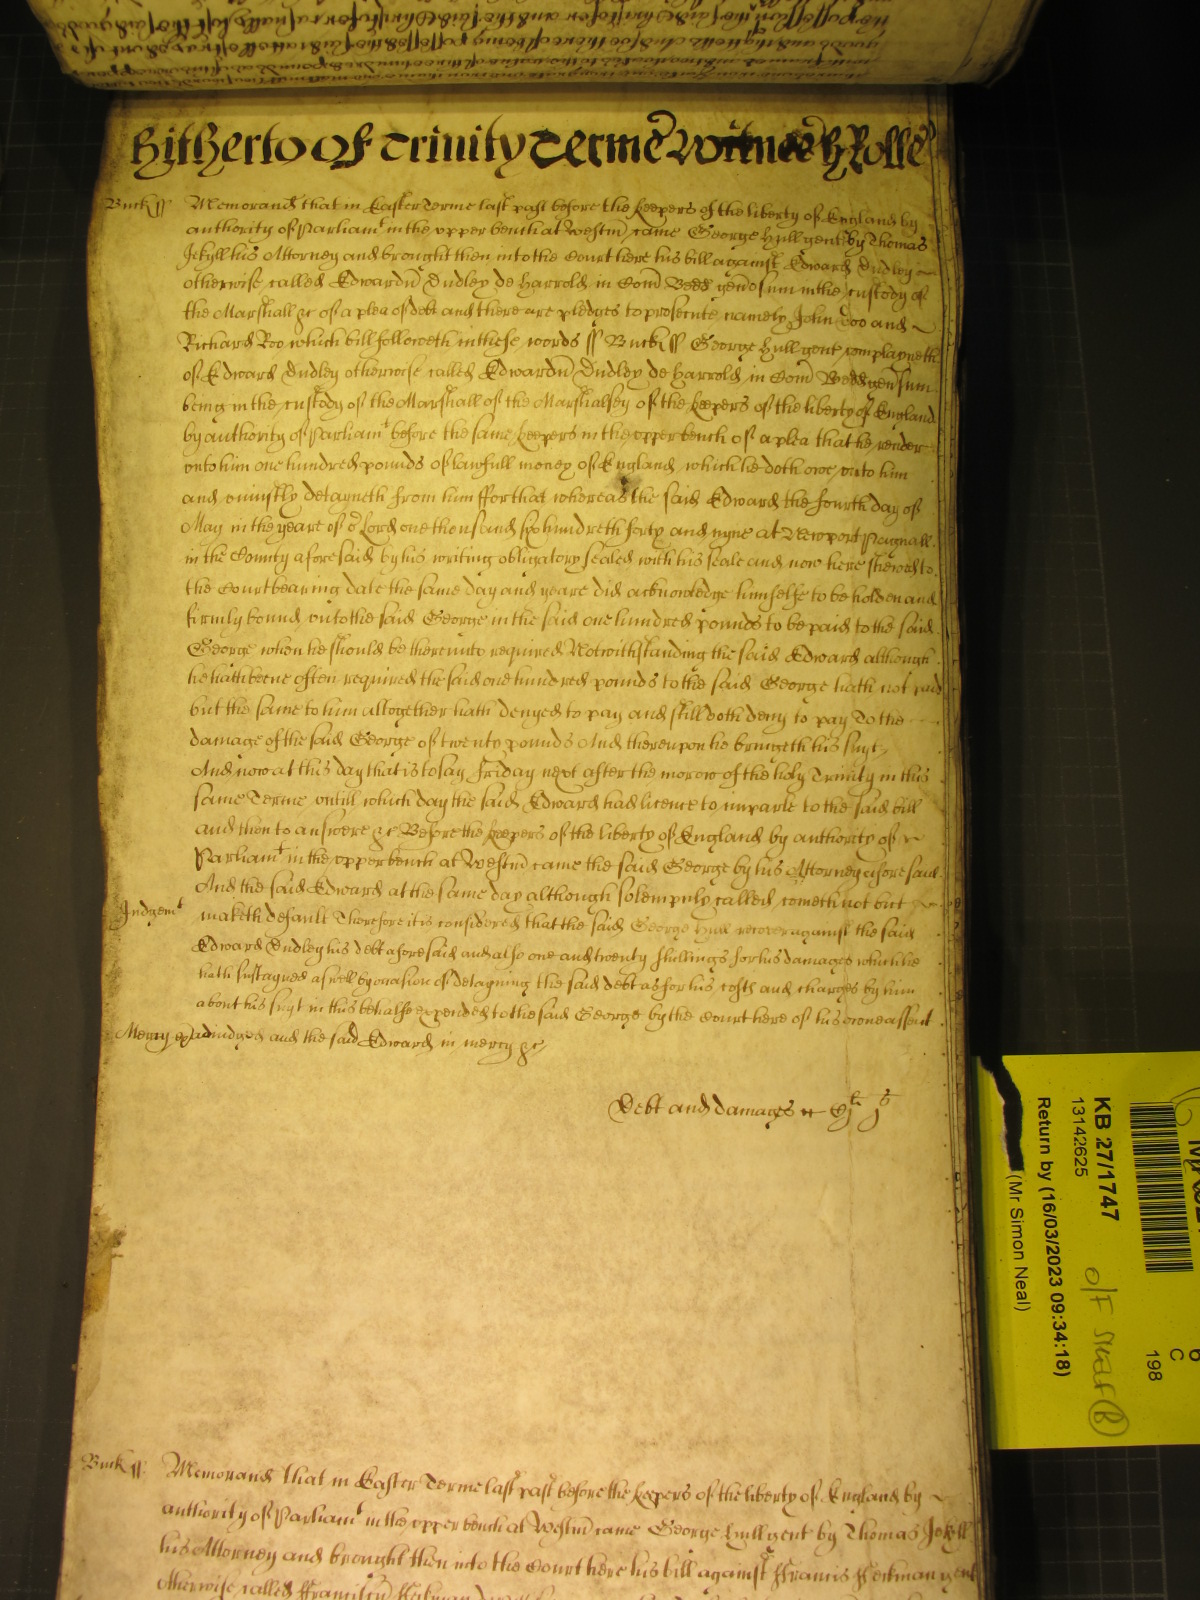 Hitherto Of Trinity Terme Witnes H Rolle
Buck ss Memorand that in Easter Terme last past before the keepers of the liberty of England by
authority of Parliamt in the vpper bench at Westm came George Hull gent by Thomas
Jekyll his Attorney and brought then into the Court here his bill against Edward Dudley
otherwise called Edwardu Dudley de Harrold in Com Bedd generosum in the custody of
the Marshall &c of a plea of debt and there are pledges to prosecute namely John Doo and
Richard Roo which bill followeth in these words ss Buck ss George Hull gent complayneth
of Edward Dudley otherwise called Edwardu Dudley de Harrold in Com Bedd gensum
being in the custody of the Marshall of the Marshalsey of the keepers of the liberty of England
by authority of Parliamt before the same keepers in the vpper bench of a plea that he render
vnto him one hundred pounds of lawfull money of England which he doth owe vnto him
and vniustly detayneth from him ffor that whereas the said Edward the fourth day of
May in the yeare of or Lord one thousand six hundreth forty and nyne at Newport Pagnall
in the County aforesaid by his writing obligatory sealed with his seale and now here shewed to
the Court bearing date the same day and yeare did acknowledge himselfe to be holden and
firmly bound vnto the said George in the said one hundred pounds to be paid to the said
George when he should be therevnto required Notwithstanding the said Edward although
he hath beene often required the said one hundred pounds to the said George hath not paid
but the same to him altogether hath denyed to pay and still doth deny to pay To the
damage of the said George of twenty pounds And thereupon he bringeth his suyt
And now at this day that is to say Friday next after the morow of the holy Trinity in this
same Terme vntill which day the said Edward had licence to imparle to the said bill
and then to answere &c Before the keepers of the liberty of England by authority of
Parliamt in the vpper bench at Westm came the said George by his Attorney aforesaid
And the said Edward at the same day although solempnly called cometh not but
Judgemt maketh default Therefore it is considered that the said George Hull recover against the said
Edward Dudley his debt aforesaid and also one and twenty shillings for his damages which he
hath sustayned aswell by occasion of detayning the said debt as for his costs and charges by him
about his suyt in this behalfe expended to the said George by the Court here of his owne assent
Mercy adiudged and the said Edward in mercy &c
Debt and damages
Buck ss Memorand that in Easter Terme last past before the keepers of the liberty of England by
authority of Parliamt in the vpper bench at Westm came George Hull gent by Thomas Jekyll
his Attorney and brought then into the Court here his bill against Francis Heckman gent
otherwise called
KB 27/1747
13142625
Return by (16/03/2023 09:34:18)
(Mr Simon Neal)
C
198